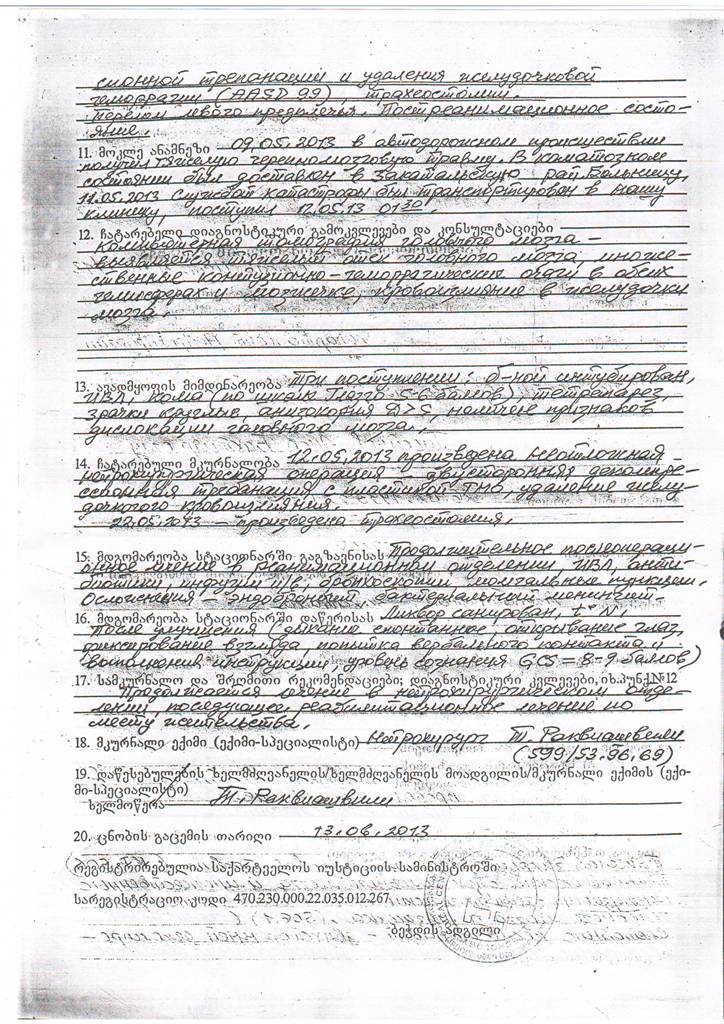 сионной трепанации и удаления желудочковой
геморрагии (AASD 99), трахеостомии.
Перелом левого предплечья. Постреанимационное состо-
яние.
11. მოკლე ანამნეზი 09.05.2013 в автодорожном происшествии
получил тяжелую черепномозговую травму. В коматозном
состоянии был доставлен в Закатальскую рай. больницу,
11.05.2013 службой катастрофы был транспортирован в нашу
клинику, поступил 12.05.13 01³⁰.
12. ჩატარებელი დიაგნოსტიკური გამოკვლევები და კონსულტაციები
Компьютерная томография головного мозга -
выявляется тяжелый отек головного мозга, множе-
ственные контузионно-геморрагические очаги в обеих
гемисферах и мозжечке, кровоизлияние в желудочки
мозга.
13. ავადმყოფის მიმდინარეობა При поступлении: б-ной интубирован,
ИВЛ, кома (по шкале Глазго 5-6 баллов), тетрапарез,
зрачки круглые, анизокория D>S, наличие признаков
дуслокации головного мозга.
14. ჩატარებული მკურნალობა 12.05.2013 произведена неотложная
нейрохирургическая операция - двусторонняя декомпре-
ссионная трепанация с пластикой ТМО, удаление желу-
дочкого кровоизлияния.
22.05.2013 — произведена трахеостомия.
15. მდგომარეობა სტაციონარში გაგზავნისას Продолжительное послеопераци-
онное лечение в реанимационном отделении, ИВЛ, анти-
биотики, инфузии i/v, бронхоскопии, люмбальные пункции.
Осложнения - эндобронхит, бактериальный менингит.
16. მდგომარეობა სტაციონარში დაწერისას Ликвор санирован, t° N,
После улучшения (дыхание спонтанное, открывание глаз,
фиксирование взгляда, попытка вербального контакта и
выполнения инструкции, уровень сознания GCS = 8-9 баллов)
17. სამკურნალო და შრომითი რეკომენდაციები; დიაგნოსტიკური კვლევები, იხ.პუნქ.№12
Продолжается лечение в нейрохирургическом отде-
лении, последующее реабилитационное лечение по
месту жительства.
18. მკურნალი ექიმი (ექიმი-სპეციალისტი) Нейрохирург Т. Раквиашвили
(599/53.96.69)
19. დაწესებულების ხელმძღვანელის/ხელმძღვანელის მოადგილის/მკურნალი ექიმის (ექი-
მი-სპეციალისტი)
ხელმოწერა Т. Раквиашвили
20. ცნობის გაცემის თარიღი 13.06.2013
რეგისტრირებულია საქართველოს იუსტიციის სამინისტროში
სარეგისტრაციო კოდი 470.230.000.22.035.012.267
ბეჭდის ადგილი